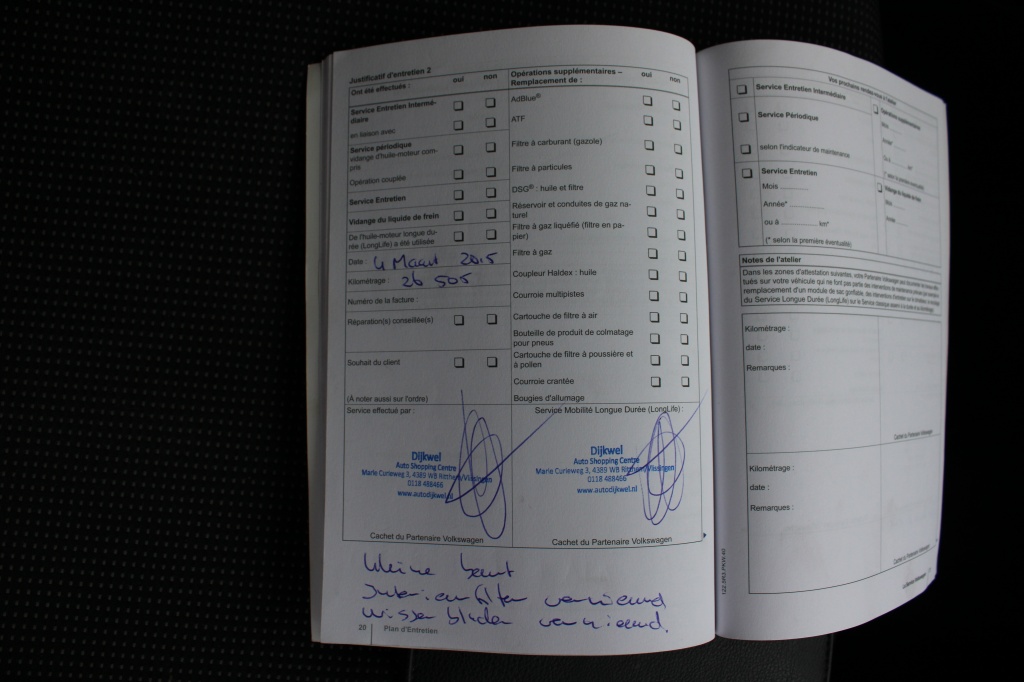 Justificatif d'entretien 2
Ont été effectués : oui non
Service Entretien Intermé-
diaire
en liaison avec
Service périodique
vidange d'huile-moteur com-
pris
Opération couplée
Service Entretien
Vidange du liquide de frein
De l'huile-moteur longue du-
rée (LongLife) a été utilisée
Date : 4 Maart 2015
Kilométrage : 26 505
Numéro de la facture :
Réparation(s) conseillée(s)
Souhait du client
(À noter aussi sur l'ordre)
Opérations supplémentaires –
Remplacement de : oui non
AdBlue®
ATF
Filtre à carburant (gazole)
Filtre à particules
DSG® : huile et filtre
Réservoir et conduites de gaz na-
turel
Filtre à gaz liquéfié (filtre en pa-
pier)
Filtre à gaz
Coupleur Haldex : huile
Courroie multipistes
Cartouche de filtre à air
Bouteille de produit de colmatage
pour pneus
Cartouche de filtre à poussière et
à pollen
Courroie crantée
Bougies d'allumage
Service effectué par :
Dijkwel
Auto Shopping Centre
Marie Curieweg 3, 4389 WB Ritthem/Vlissingen
0118 488466
www.autodijkwel.nl
Cachet du Partenaire Volkswagen
Service Mobilité Longue Durée (LongLife) :
Dijkwel
Auto Shopping Centre
Marie Curieweg 3, 4389 WB Ritthem/Vlissingen
0118 488466
www.autodijkwel.nl
Cachet du Partenaire Volkswagen
kleine beurt
Interieurfilter vernieuwd
wisserbladen vernieuwd.
20 Plan d'Entretien
Vos prochains rendez-vous à l'atelier
Service Entretien Intermédiaire
Service Périodique
selon l'indicateur de maintenance
Service Entretien
Mois ............
Année* ............
ou à ............... km*
(* selon la première éventualité)
Opérations supplémentaires
Mois
Année
Ou à km*
(* selon la première éventualité)
Vidange du liquide de frein
Mois
Année
Notes de l'atelier
Dans les zones d'attestation suivantes, votre Partenaire Volkswagen peut
tués sur votre véhicule qui ne font pas partie des
remplacement d'un module de sac gonflable, des
du Service Longue Durée (LongLife)
Kilométrage :
date :
Remarques :
Cachet du Partenaire Volkswagen
Kilométrage :
date :
Remarques :
Cachet du Partenaire Volkswagen